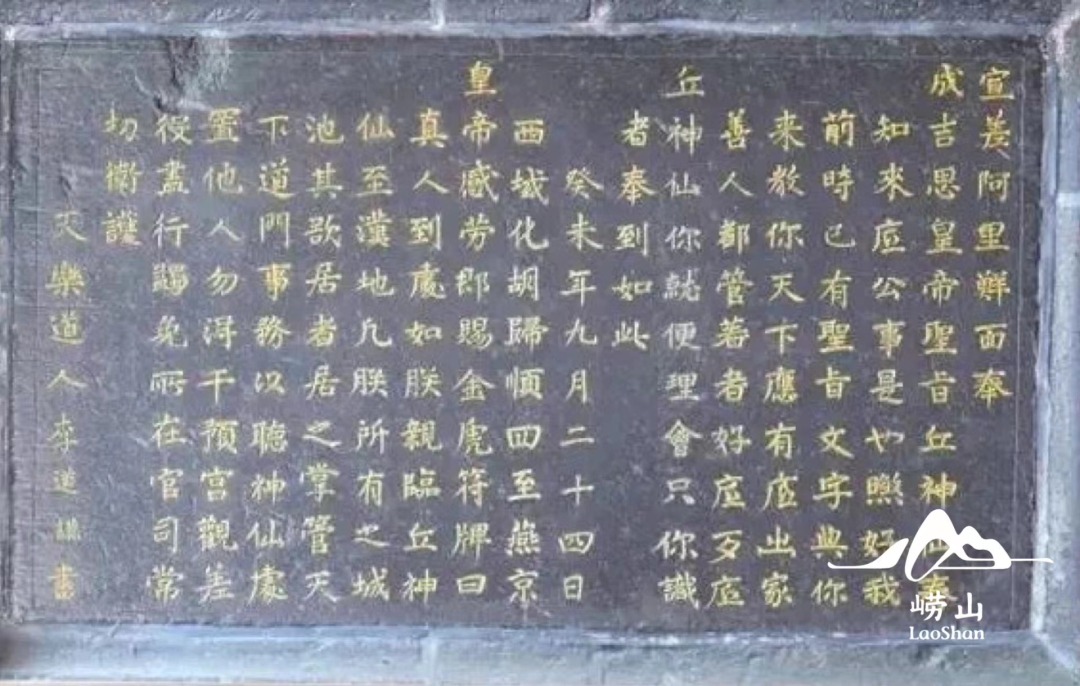 宣差阿里鮮面奉
成吉思皇帝聖旨丘神仙奏
知來底公事是也煞好我
前時已有聖旨文字與你
來教你天下應有底出家
善人都管著者好底歹底
丘神仙你就便理會只你識
者奉到如此
癸未年九月二十四日
西域化胡歸順四至燕京
皇帝感勞即賜金虎符牌曰
真人到處如朕親臨丘神
仙至漢地凡朕所有之城
池其欲居者居之掌管天
下道門事務以聽神仙處
置他人勿得干預宮觀差
役盡行蠲免所在官司常
切衛護
天樂道人李道謙書
崂山
LaoShan